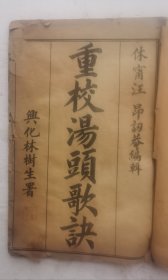 休甯汪昂訒菴編輯
重校湯頭歌訣
興化林樹生署